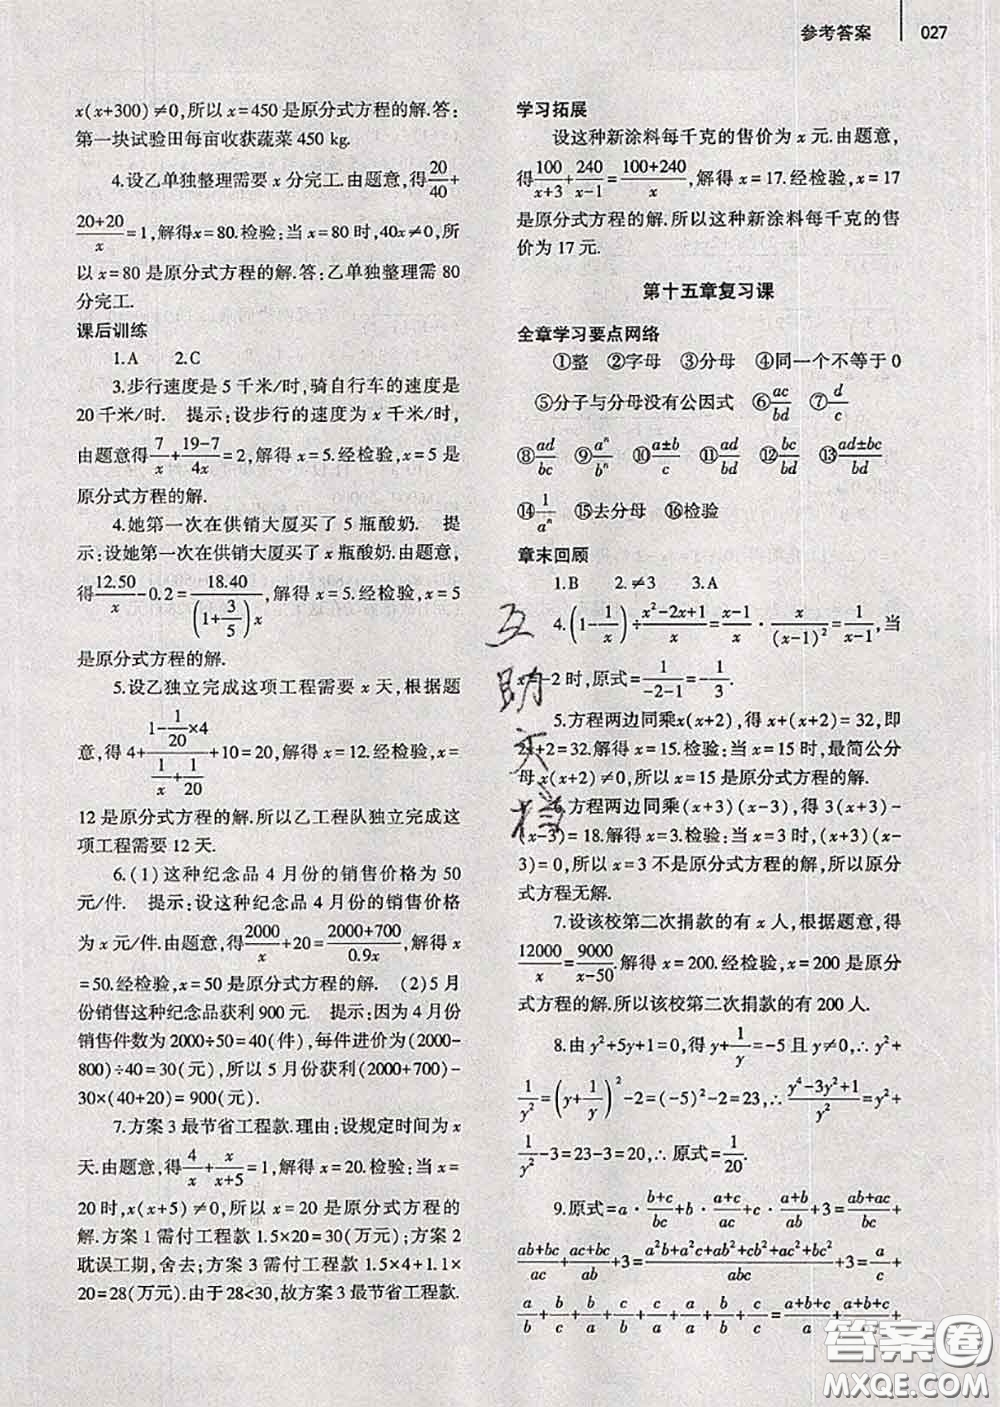 参考答案 027
x(x+300)≠0,所以x=450是原分式方程的解.答:
第一块试验田每亩收获蔬菜450 kg.
4.设乙单独整理需要x分完工.由题意,得20/40+
(20+20)/x=1,解得x=80.检验:当x=80时,40x≠0,所
以x=80是原分式方程的解.答:乙单独整理需80
分完工.
课后训练
1.A 2.C
3.步行速度是5千米/时,骑自行车的速度是
20千米/时. 提示:设步行的速度为x千米/时,
由题意得7/x+(19-7)/4x=2,解得x=5.经检验,x=5是
原分式方程的解.
4.她第一次在供销大厦买了5瓶酸奶. 提
示:设她第一次在供销大厦买了x瓶酸奶.由题意,
得12.50/x-0.2=18.40/((1+3/5)x),解得x=5.经检验,x=5
是原分式方程的解.
5.设乙独立完成这项工程需要x天,根据题
意,得4+(1-1/20×4)/(1/x+1/20)+10=20,解得x=12.经检验,x=
12是原分式方程的解.所以乙工程队独立完成这
项工程需要12天.
6.(1)这种纪念品4月份的销售价格为50
元/件. 提示:设这种纪念品4月份的销售价格
为x元/件.由题意,得2000/x+20=(2000+700)/0.9x,解得x
=50.经检验,x=50是原分式方程的解. (2)5月
份销售这种纪念品获利900元. 提示:因为4月份
销售件数为2000÷50=40(件),每件进价为(2000-
800)÷40=30(元),所以5月份获利(2000+700)-
30×(40+20)=900(元).
7.方案3最节省工程款.理由:设规定时间为x
天.由题意,得4/x+x/(x+5)=1,解得x=20.检验:当x=
20时,x(x+5)≠0,所以x=20是原分式方程的
解.方案1需付工程款1.5×20=30(万元);方案2
耽误工期,舍去;方案3需付工程款1.5×4+1.1×
20=28(万元).由于28<30,故方案3最节省工程款.
学习拓展
设这种新涂料每千克的售价为x元.由题意,
得100/(x+3)+240/(x-1)=(100+240)/x,解得x=17.经检验,x=17
是原分式方程的解.所以这种新涂料每千克的售
价为17元.
第十五章复习课
全章学习要点网络
①整 ②字母 ③分母 ④同一个不等于0
⑤分子与分母没有公因式 ⑥ac/bd ⑦d/c
⑧ad/bc ⑨aⁿ/bⁿ ⑩(a±b)/c ⑪ad/bd ⑫bc/bd ⑬(ad±bc)/bd
⑭1/aⁿ ⑮去分母 ⑯检验
章末回顾
1.B 2.≠3 3.A
4.(1-1/x)÷(x²-2x+1)/x=(x-1)/x·x/(x-1)²=1/(x-1),当
x=-2时,原式=1/(-2-1)=-1/3.
5.方程两边同乘x(x+2),得x+(x+2)=32,即
2x+2=32.解得x=15.检验:当x=15时,最简公分
母x(x+2)≠0,所以x=15是原分式方程的解.
6.方程两边同乘(x+3)(x-3),得3(x+3)-
(x-3)=18.解得x=3.检验:当x=3时,(x+3)(x-
3)=0,所以x=3不是原分式方程的解,所以原分
式方程无解.
7.设该校第二次捐款的有x人,根据题意,得
12000/x=9000/(x-50).解得x=200.经检验,x=200是原分
式方程的解.所以该校第二次捐款的有200人.
8.由y²+5y+1=0,得y+1/y=-5且y≠0,∴y²+
1/y²=(y+1/y)²-2=(-5)²-2=23,∴(y⁴-3y²+1)/y²=y²+
1/y²-3=23-3=20,∴原式=1/20.
9.原式=a·(b+c)/bc+b·(a+c)/ac+c·(a+b)/ab+3=(ab+ac)/bc+
(ab+bc)/ac+(ac+bc)/ab+3=(a²b+a²c+ab²+cb²+ac²+bc²)/abc+3=a/c+
a/b+b/c+b/a+c/a+c/b+a/a+b/b+c/c=(a+b+c)/a+(a+b+c)/b+
互助文档
答案圈
MXQE.COM